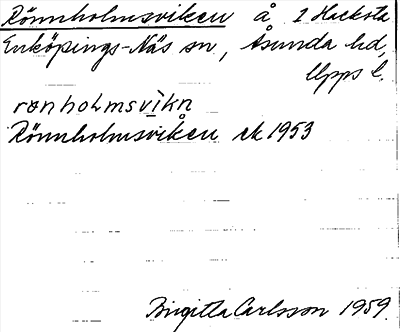 Rönnholmsviken å 1 Hacksta
Enköpings-Näs sn, Åsunda hd,
Upps l.
rønholmsvìkn̥
Rönnholmsviken ek 1953
Birgitta Carlsson 1959.